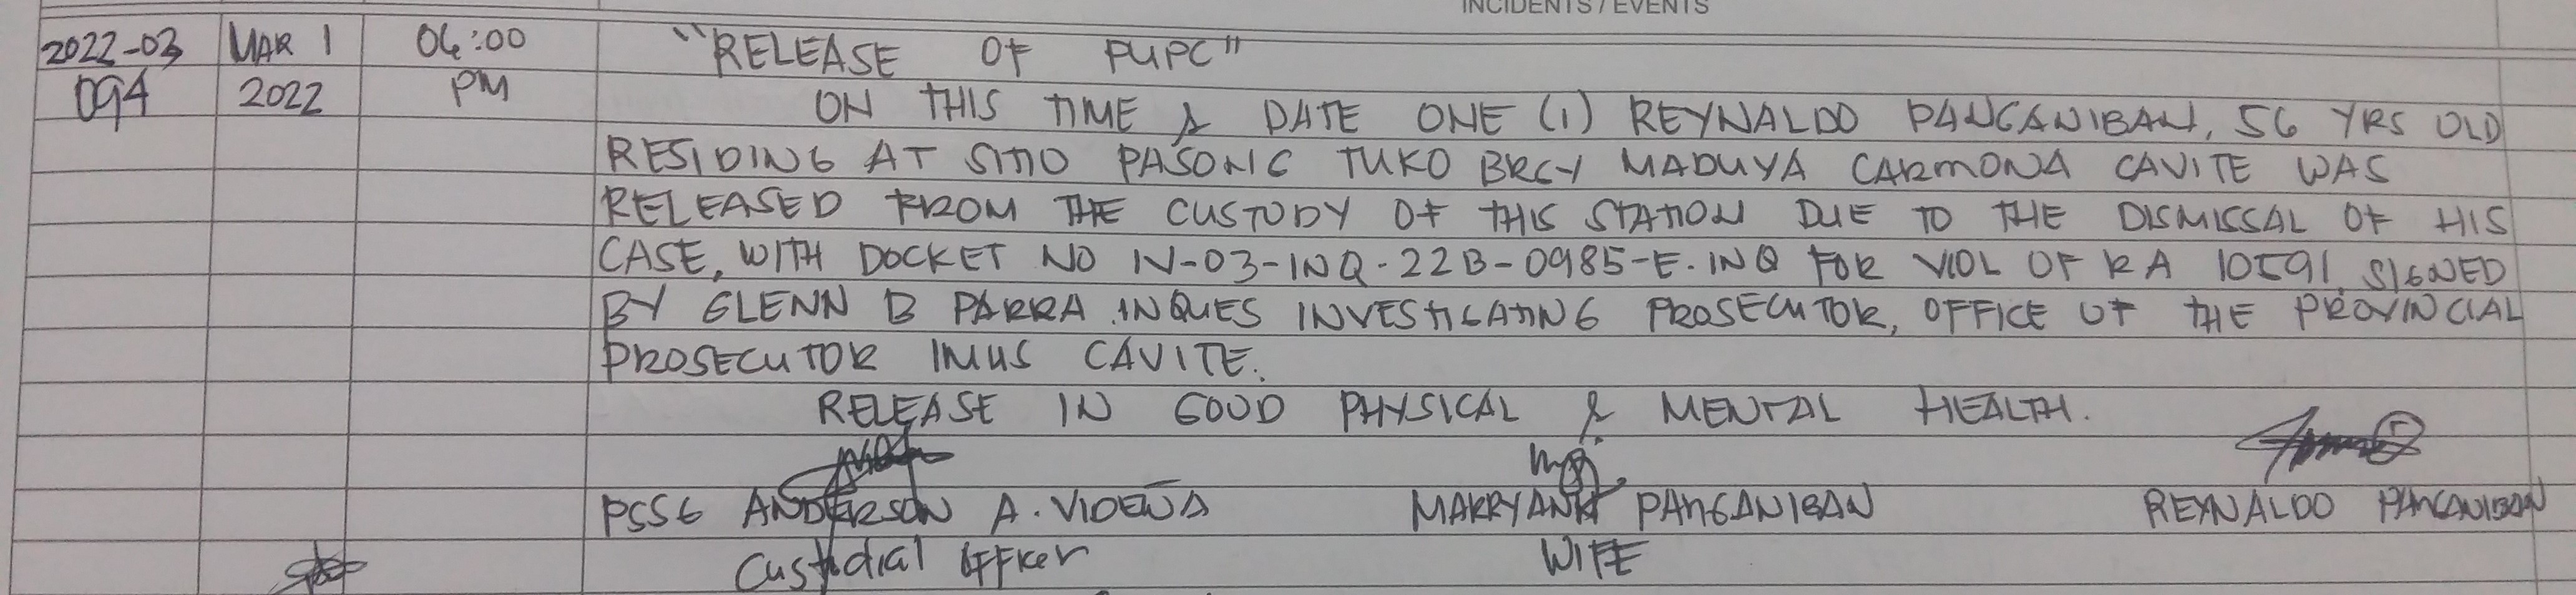 INCIDENTS / EVENTS
2022-03 MAR 1 04:00 "RELEASE OF PUPC"
094 2022 PM ON THIS TIME & DATE ONE (1) REYNALDO PANGANIBAN, 56 YRS OLD
RESIDING AT SITIO PASONG TUKO BRGY MADUYA CARMONA CAVITE WAS
RELEASED FROM THE CUSTODY OF THIS STATION DUE TO THE DISMISSAL OF HIS
CASE, WITH DOCKET NO IV-03-INQ-22B-0985-E.INQ FOR VIOL OF RA 10591, SIGNED
BY GLENN B PARRA INQUES INVESTIGATING PROSECUTOR, OFFICE OF THE PROVINCIAL
PROSECUTOR IMUS CAVITE.
RELEASE IN GOOD PHYSICAL & MENTAL HEALTH.
PSSG ANDERSON A. VIDEÑA MARRYANN PANGANIBAN REYNALDO PANGANIBAN
Custodial Officer WIFE